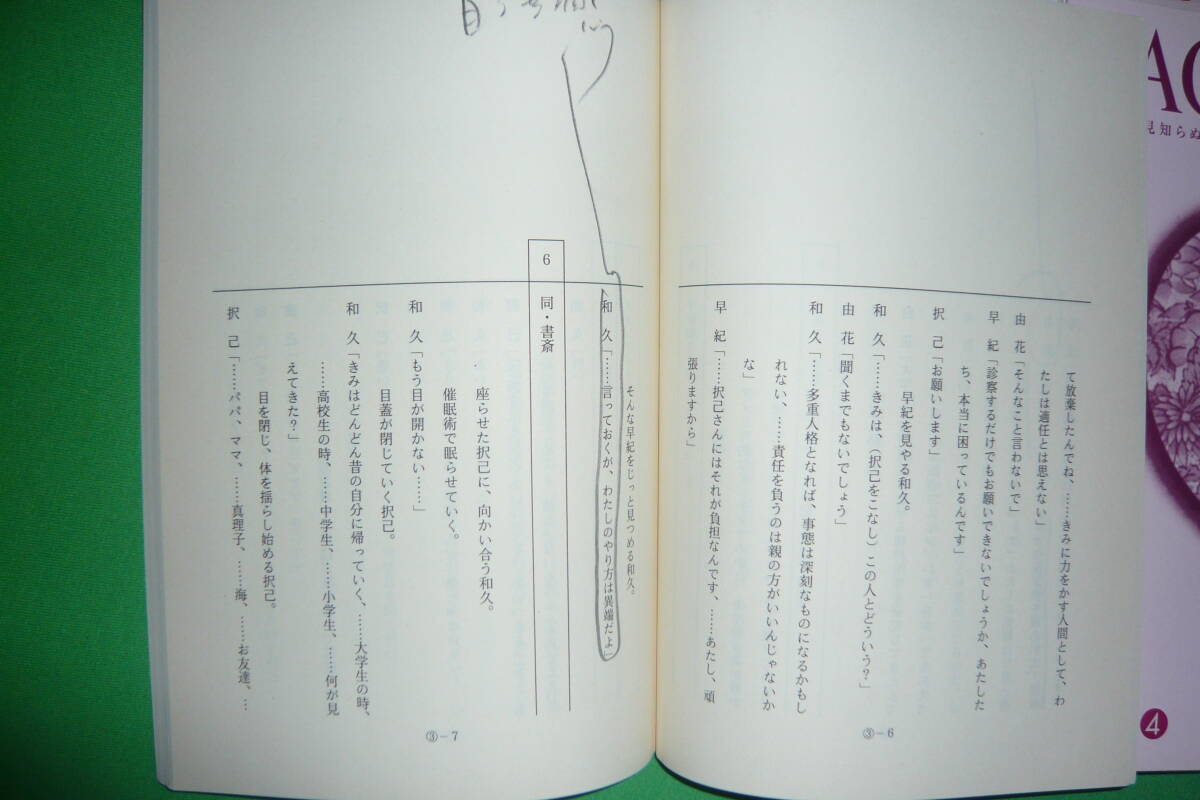 て放棄したんでね、……きみに力をかす人間として、わ
たしは適任とは思えない」
由 花「そんなこと言わないで」
早 紀「診察するだけでもお願いできないでしょうか、あたした
ち、本当に困っているんです」
択 己「お願いします」
早紀を見やる和久。
和 久「……きみは、（択己をこなし）この人とどういう？」
由 花「聞くまでもないでしょう」
和 久「……多重人格となれば、事態は深刻なものになるかもし
れない、……責任を負うのは親の方がいいんじゃないか
な」
早 紀「……択己さんにはそれが負担なんです、……あたし、頑
張りますから」
③－6
そんな早紀をじっと見つめる和久。
和 久「……言っておくが、わたしのやり方は異端だよ」
6 同・書斎
座らせた択己に、向かい合う和久。
催眠術で眠らせていく。
和 久「もう目が開かない……」
目蓋が閉じていく択己。
和 久「きみはどんどん昔の自分に帰っていく、……大学生の時、
……高校生の時、……中学生、……小学生、……何が見
えてきた？」
目を閉じ、体を揺らし始める択己。
択 己「……パパ、ママ、……真理子、……海、……お友達、…
③－7
見知らぬ
4